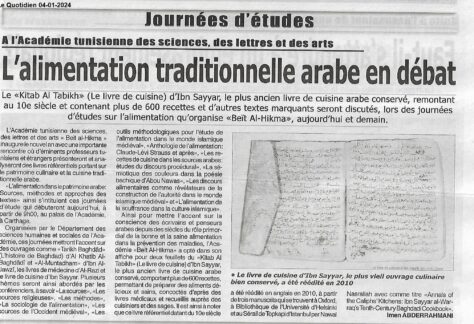 Le Quotidien 04-01-2024
Journées d'études
A l'Académie tunisienne des sciences, des lettres et des arts
L'alimentation traditionnelle arabe en débat
Le «Kitab Al Tabikh» (Le livre de cuisine) d'Ibn Sayyar, le plus ancien livre de cuisine arabe conservé, remontant
au 10e siècle et contenant plus de 600 recettes et d'autres textes marquants seront discutés, lors des journées
d'études sur l'alimentation qu'organise «Beït Al-Hikma», aujourd'hui et demain.
L'Académie tunisienne des sciences,
des lettres et des arts «Beït al-Hikma»
inaugure le nouvel an avec une importante
rencontre où d'éminents professeurs tu-
nisiens et étrangers présenteront et analy-
seront des livres référentiels portant sur
le patrimoine culinaire et la cuisine tradi-
tionnelle arabe.
«L'alimentation dans le patrimoine arabe:
Sources, méthodes et approches des
textes» ainsi s'intitulent ces journées
d'étude qui débuteront aujourd'hui, à
partir de 9h00, au palais de l'Académie,
à Carthage.
Organisées par le Département des
sciences humaines et sociales de l'Aca-
démie, ces journées mettront l'accent sur
des ouvrages comme «Tarikh Baghdâd»
(L'histoire de Bagdad) d'Al Khatib Al-
Baghdadi et «Al-Muntadham» d'Ibn al-
Jawzi, les livres de médecine d'Al-Razi et
le livre de cuisine d'Ibn Sayyar. Plusieurs
thèmes seront ainsi abordés par les
conférenciers, à savoir «Les sources», «Les
sources religieuses», «Les méthodes»,
«La sociologie de l'alimentation», «Les
sources de l'Occident médiéval», «Les
outils méthodologiques pour l'étude de
l'alimentation dans le monde islamique
médiéval», «Anthologie de l'alimentation:
Claude-Lévi Strauss et après», «Les re-
cettes de cuisine dans les sources arabes:
études du discours procédural», «La sé-
miotique des couleurs dans la poésie
bachique d'Abou Nawas», «Les discours
alimentaires comme révélateurs de la
construction de l'autorité dans le monde
islamique médiéval» et «L'alimentation de
la souffrance dans la culture islamique».
Ainsi pour mettre l'accent sur la
conscience des écrivains et penseurs
arabes depuis des siècles du rôle primor-
dial de la bonne et la saine alimentation
dans la prévention des maladies, l'Aca-
démie «Beït Al-Hikma» a cité dans son
affiche pour deux feuillets du «Kitab Al
Tabikh» (Le livre de cuisine) d'Ibn Sayyar,
le plus ancien livre de cuisine arabe
conservé, comportant plus de 600 recettes,
permettant de préparer des aliments dé-
licieux et sains, concoctés d'après des
livres médicaux et recueils des coutumes
cuisinières et des sages. Il est ainsi à noter
que ce livre référentiel datant du 10e siècle
• Le livre de cuisine d'Ibn Sayyar, le plus vieil ouvrage culinaire
bien conservé, a été réédité en 2010
a été réédité en anglais en 2010, à partir
de trois manuscrits qui se trouvent à Oxford,
à Bibliothèque de l'Université d'Helsinki
et au Sérail de Topkapi d'Istanbul par Nawal
Nasrallah avec comme titre «Annals of
the Caliphs' Kitchens: Ibn Sayyar al-Warraq's
Tenth-Century Baghdadi Cookbook».
Imen ABDERRAHMANI